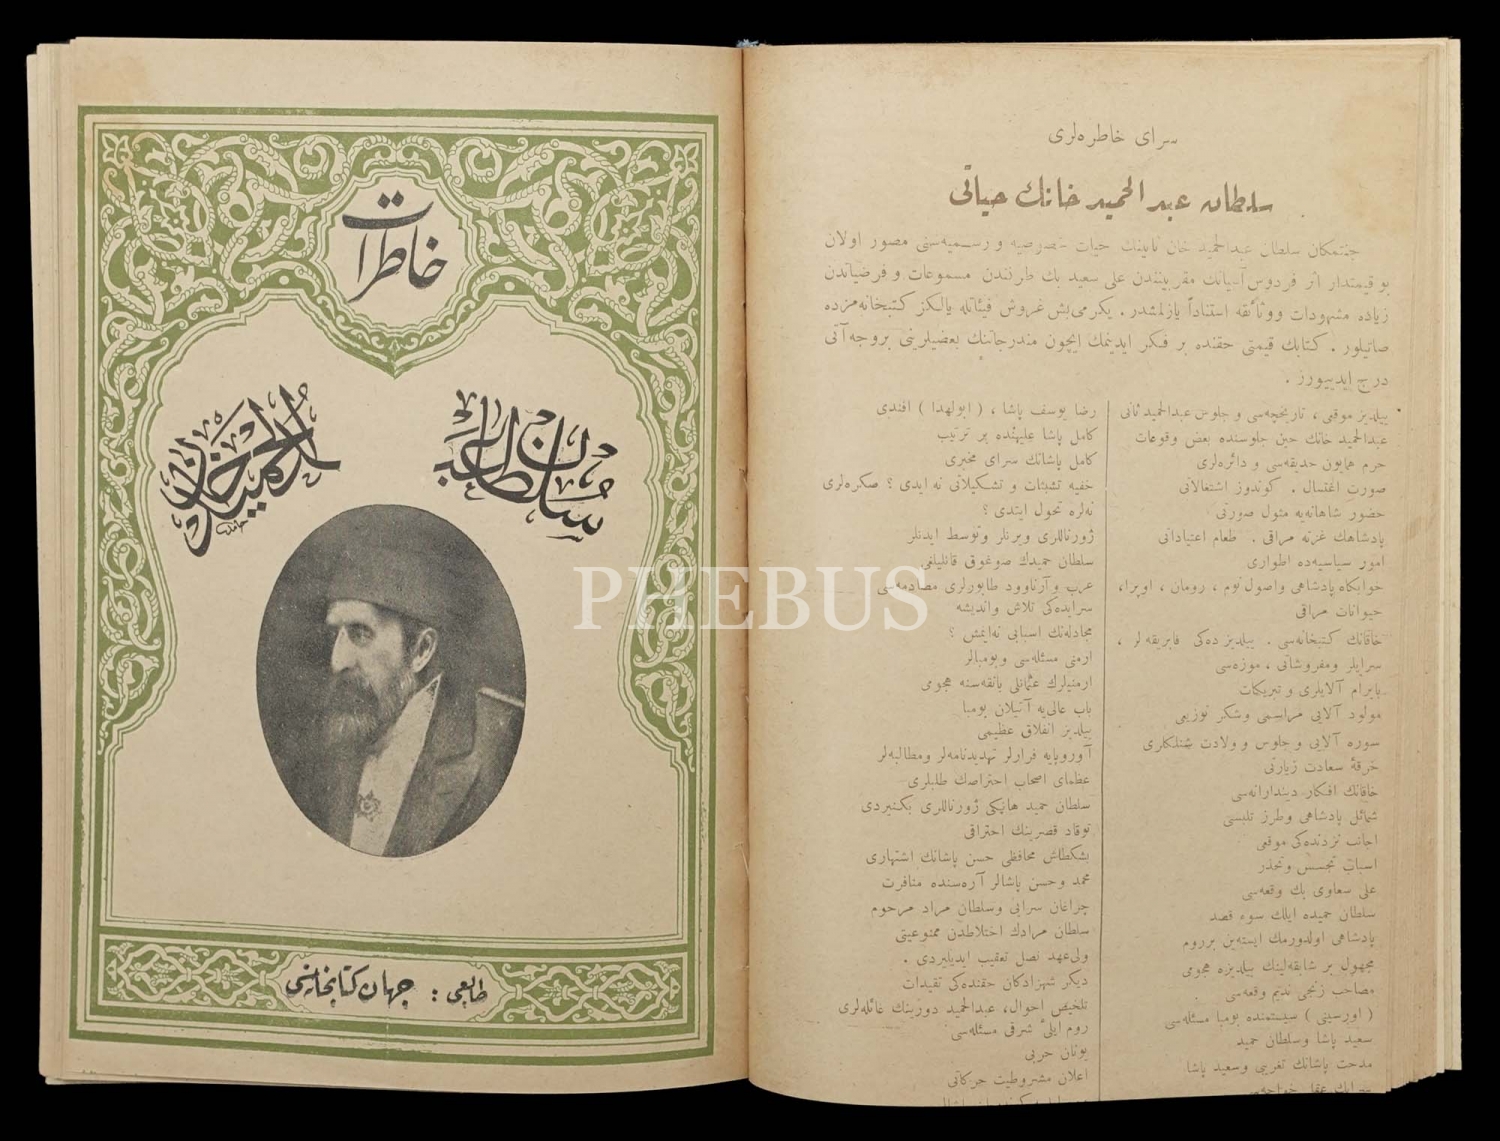 خاطرات
سلطان عبد
الحميد خان
حامد
طابعى : جهان كتابخانه‌سى
سراى خاطره‌لرى
سلطان عبدالحميد خانك حياتى
جنتمكان سلطان عبدالحميد خان ثانينك حيات خصوصيه و رسميه‌سنى مصور اولان
بو قيمتدار اثر فردوس آشيانك مقربيندن على سعيد بك طرفندن مسموعات و فرضياتدن
زياده مشهودات ووثائقه استناداً يازلمشدر . يكرمى‌بش غروش فيئاتله يالكز كتبخانه‌مزده
صاتيلور . كتابك قيمتى حقنده بر فكر ايدينمك ايچون مندرجاتنك بعضيلرينى بروجه آتى
درج ايدييورز .
ييلديز موقعى ، تاريخچه‌سى و جلوس عبدالحميد ثانى
عبدالحميد خانك حين جلوسنده بعض وقوعات
حرم همايون حديقه‌سى و دائره‌لرى
صورت اغتسال . كوندوز اشتغالاتى
حضور شاهانه‌يه مثول صورتى
پادشاهك غزته مراقى . طعام اعتياداتى
امور سياسيه‌ده اطوارى
خوابكاه پادشاهى واصول نوم ، رومان ، اوپرا ،
حيوانات مراقى
خاقانك كتبخانه‌سى . ييلديز ده‌كى فابريقه لر ،
سرايلر ومفروشاتى ، موزه‌سى
بايرام آلايلرى و تبريكات
مولود آلايى مراسمى وشكر توزيعى
سوره آلايى و جلوس و ولادت شنلكلرى
خرقهٔ سعادت زيارتى
خاقانك افكار دين‌دارانه‌سى
شمائل پادشاهى وطرز تلبسى
اجانب نزدنده‌كى موقعى
اسباب تجسس وتحذر
على سعاوى بك وقعه‌سى
سلطان حميده ايلك سوء قصد
پادشاهى اولدورمك ايسته‌ين برروم
مجهول بر شابقه‌لينك ييلديزه هجومى
مصاحب زنجى نديم وقعه‌سى
( اورسينى ) سيستمنده بومبا مسئله‌سى
سعيد پاشا وسلطان حميد
مدحت پاشانك تغريبى وسعيد پاشا
رضا يوسف پاشا ، ( ابولهدا ) افندى
كامل پاشا عليهنده بر ترتيب
كامل پاشانك سراى مخبرى
خفيه تشبثات و تشكيلاتى نه ايدى ؟ صكره‌لرى
نه‌لره تحول ايتدى ؟
ژورناللرى ويرنلر وتوسط ايدنلر
سلطان حميدك صوغوق قانليلغى
عرب وآرناوود طابورلرى مصادمه‌سى
سرايده‌كى تلاش وانديشه
مجادله‌نك اسبابى نه‌ايمش ؟
ارمنى مسئله‌سى وبومبالر
ارمنيلرك عثمانلى بانقه‌سنه هجومى
باب عالى‌يه آتيلان بومبا
ييلديز انفلاق عظيمى
آوروپايه فرارلر تهديدنامه‌لر ومطالبه‌لر
عظماى اصحاب احتراصك طلبلرى
سلطان حميد هانپكى ژورناللرى بكنيردى
توقاد قصرينك احتراقى
بشكطاش محافظى حسن پاشانك اشتهارى
محمد وحسن پاشالر آره‌سنده منافرت
چراغان سرايى وسلطان مراد مرحوم
سلطان مرادك اختلاطدن ممنوعيتى
ولى‌عهد نصل تعقيب ايديليردى .
ديكر شهزادكان حقنده‌كى تقيدات
تلخيص احوال، عبدالحميد دورينك غائله‌لرى
روم ايلىٔ شرقى مسئله‌سى
يونان حربى
اعلان مشروطيت حركاتى
PHEBUS